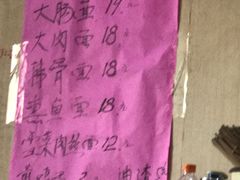 大肠面 19元
大肉面 18元
排骨面 18元
熏鱼面 18元
雪菜肉丝面 12元